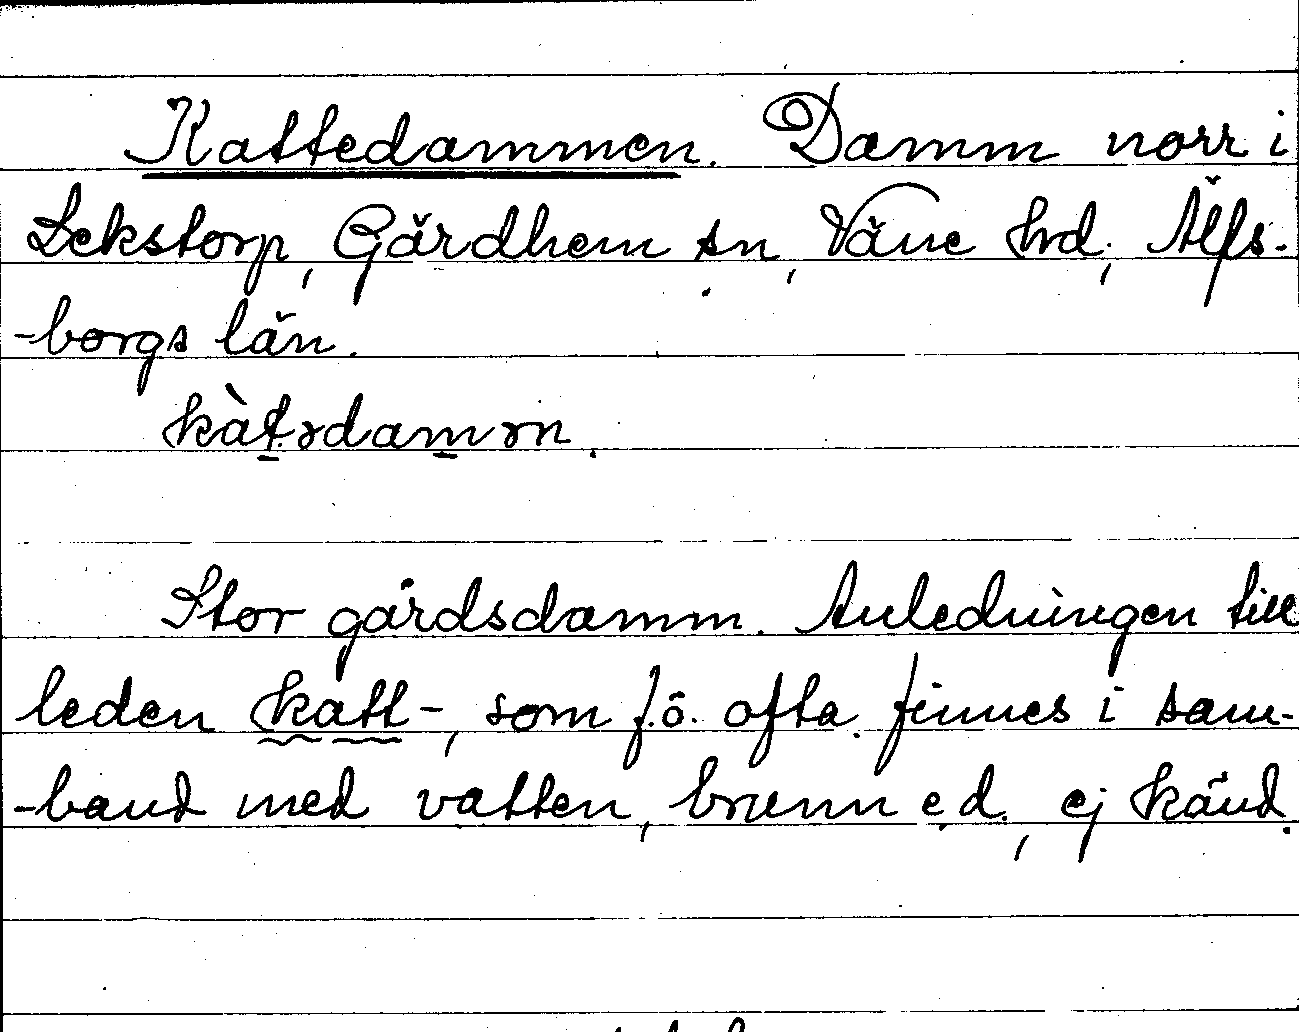 Kattedammen. Damm norr i
Lekstorp, Gärdhem sn, Väne hd, Älfs-
-borgs län.
kàt̲ɘdam̲ɘn.
Stor gårdsdamm. Anledningen till
leden katt-, som f.ö. ofta finnes i sam-
-band med vatten, brunn e.d., ej känd.